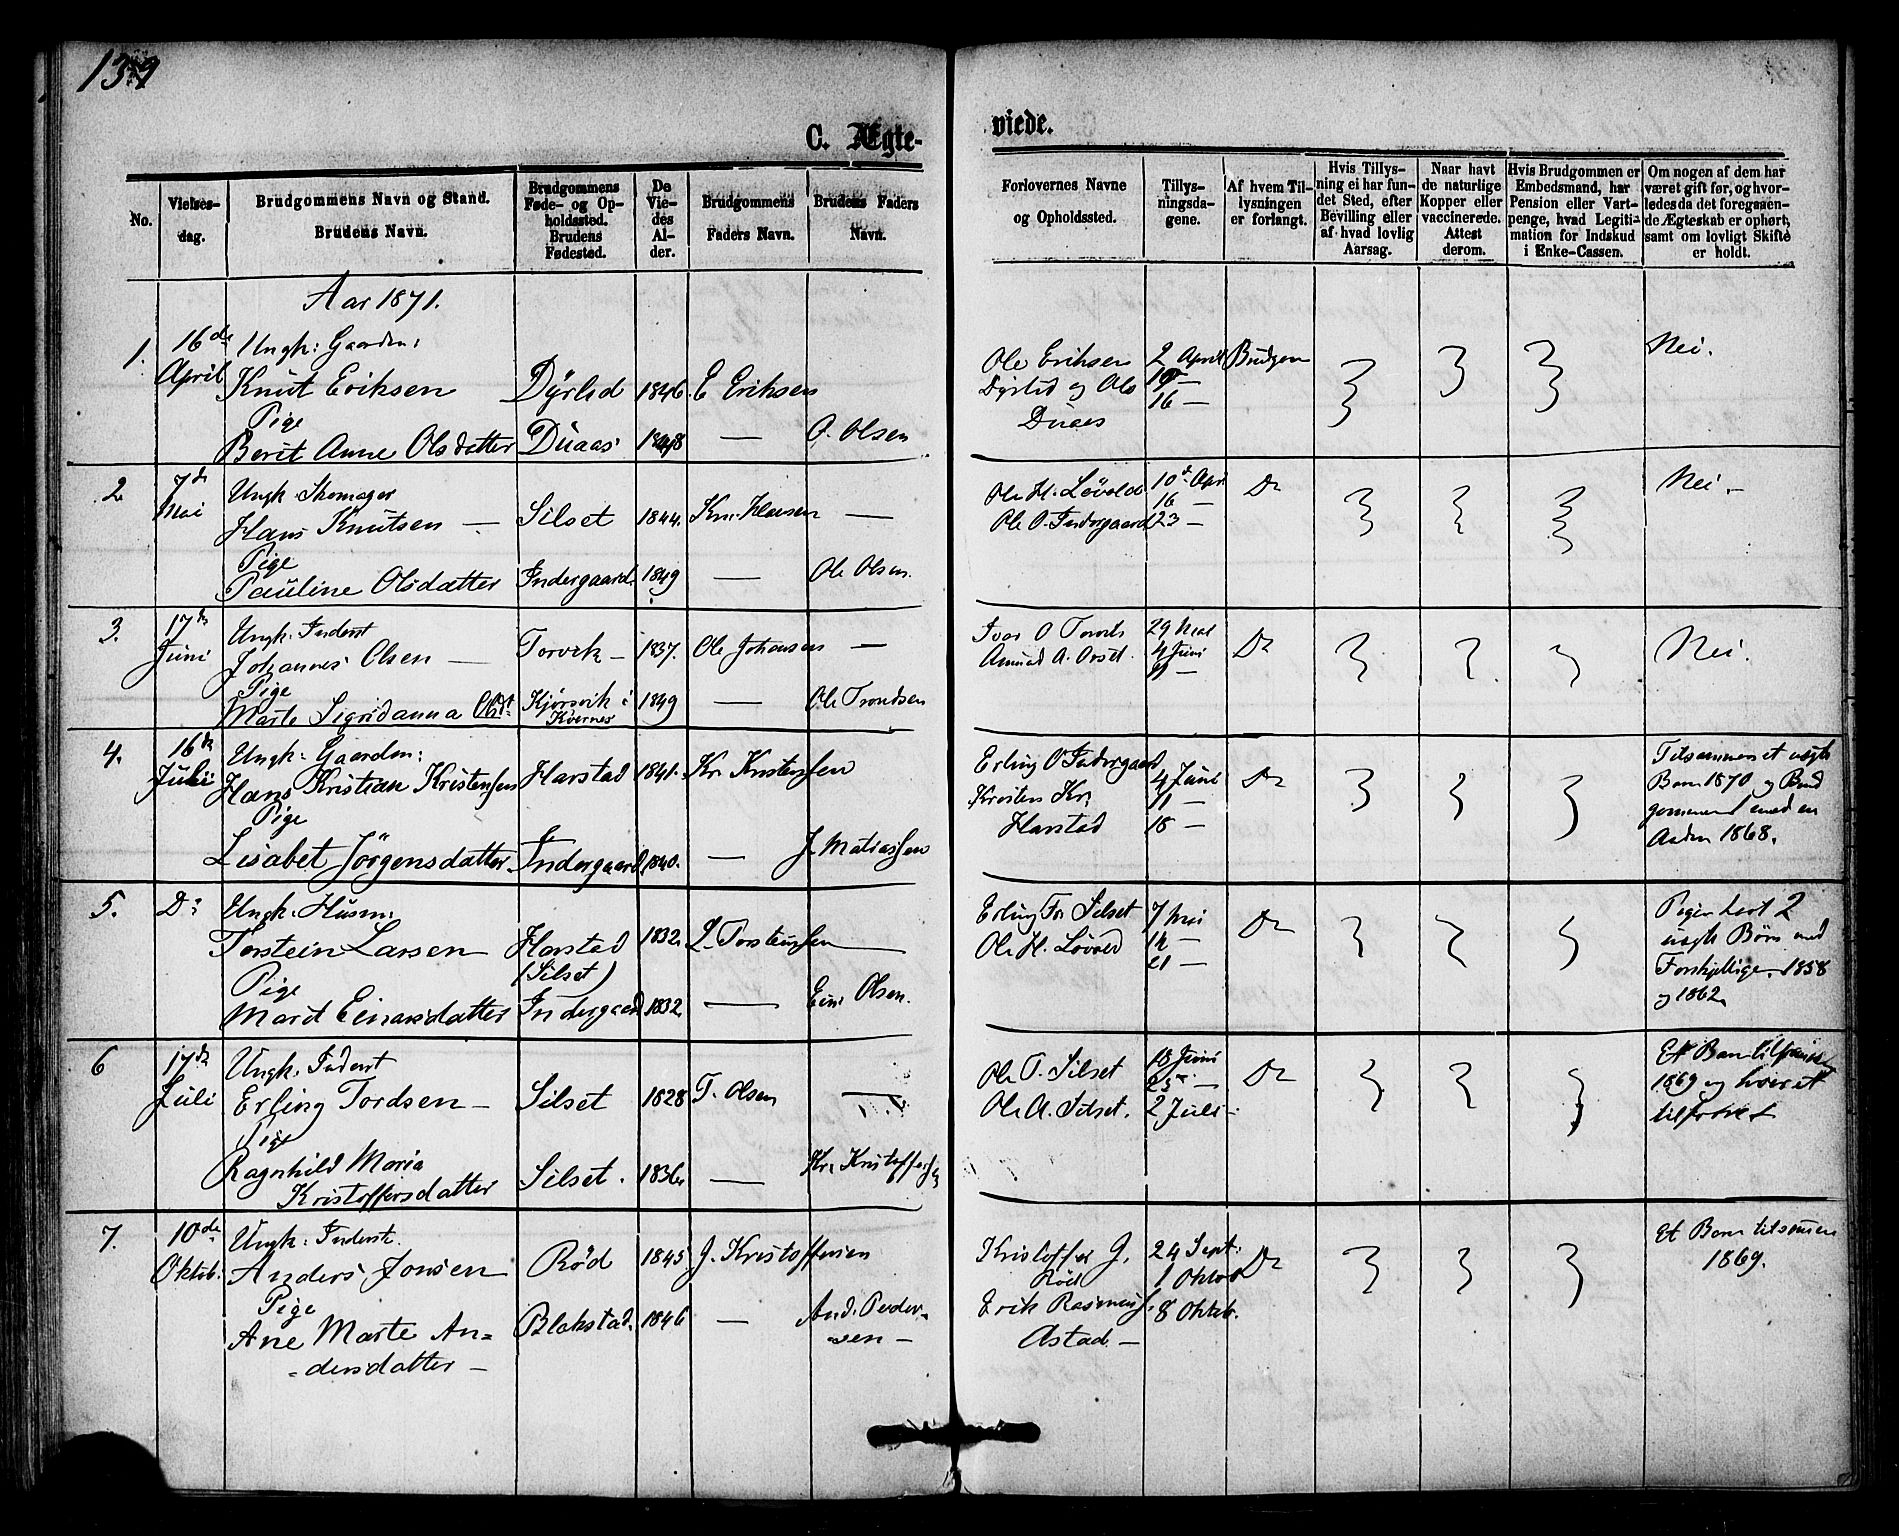 139
C. Ægte-
viede.
No.
Vielses-
dag.
Brudgommens Navn og Stand.
Brudens Navn.
Brudgommens
Føde- og Op-
holdssted.
Brudens
Fødested.
De
Vie-
des
Al-
der.
Brudgommens
Faders Navn.
Brudens Faders
Navn.
Forlovernes Navne
og Opholdssted.
Tillys-
ningsda-
gene.
Af hvem Til-
lysningen
er forlangt.
Hvis Tillys-
ning ei har fun-
det Sted, efter
Bevilling eller
af hvad lovlig
Aarsag.
Naar havt
de naturlige
Kopper eller
vaccinerede.
Attest
derom.
Hvis Brudgommen er
Embedsmand, har
Pension eller Vart-
penge, hvad Legiti-
mation for Indskud
i Enke-Cassen.
Om nogen af dem har
været gift før, og hvor-
ledes da det foregaaen-
de Ægteskab er ophørt,
samt om lovligt Skifte
er holdt.
Aar 1871.
1.
16de
April
Ungk: Gaardm:
Knut Eriksen
Dyrlid
1846.
E Eriksen
Pige
Berit Anne Olsdatter
Duaas
1848
—
O. Olsen
Ole Eriksen
Dyrlid og Ole
Duaas
2 April
10 —
16 —
Brudgm
Nei.
2
7de
Mai
Ungk. Skomager
Hans Knutsen —
Silset
1844.
Kn. Hansen
—
Pige
Pauline Olsdatter
Indergaard
1849
—
Ole Olsen.
Ole H. Løvold
Ole O. Indergaard
10de Apr.
16 —
23 —
Do
Nei. —
3.
17de
Juni
Ungk. Inderst
Johannes Olsen —
Torvik —
1837.
Ole Johansen
—
Pige
Marte Sigridanna Olsdt
Kjørsvik i
Kvernes
1849
—
Ole Trondsen
Ivar O Torvik
Amund A. Orset.
29 Mai
4 Juni
11 —
Do
Nei.
4.
16de
Juli
Ungk: Gaardm:
Hans Kristian Kristensen
Harstad
1841.
Kr. Kristensen
Pige
Lisabet Jörgensdatter
Indergaard
1840.
—
J. Matiassen
Erling O Indergaard
Kristen Kr.
Harstad
4 Juni
11 —
18 —
Do
Tilsammen et uægte
Barn 1870 og Brud
gommen 1 med en
Anden 1868.
5.
Do
Ungk. Husm.
Torstein Larsen
Harstad
(Silset)
1832.
L. Torsteinsen
—
Pige
Marit Einarsdatter
Indergaard
1832
—
Ein. Olsen.
Erling To Silset
Ole H. Løvold
7 Mai
14 —
21 —
Do
Pigen havt 2
uægte Børn med
Forskjellige. 1858
og 1862
6
17de
Juli
Ungk. Inderst
Erling Tordsen —
Silset
1828
T. Olsen
—
Pige
Ragnhild Maria
Kristoffersdatter
Silset.
1836.
—
Kr. Kristoffersen
Ole T. Silset
Ole A. Silset.
18 Juni
25 —
2 Juli —
Do
Et Barn
1869 og hver et
7.
10de
Oktob.
Ungk: Inderst.
Anders Jonsen
Rød
1845
J. Kristoffersen
Pige
Ane Marte An=
=dersdatter —
Blakstad
1846
—
And. Peder-
sen —
Kristoffer J.
Röd
Erik Rasmuss.
Astad —
24 Sept:
1 Oktob
8 Oktob.
Do
Et Barn tilsammen
1869.